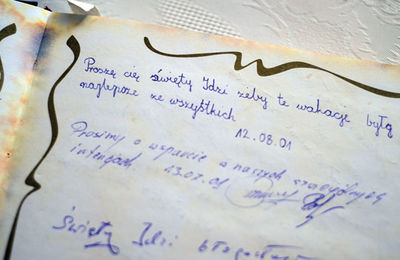 Proszę cię święty Idzi żeby te wakacje był
najlepsze ze wszystkich
12.08.01
Prosimy o wsparcie w naszych szczególnych
intencjach 13.07.01
Święty Idzi